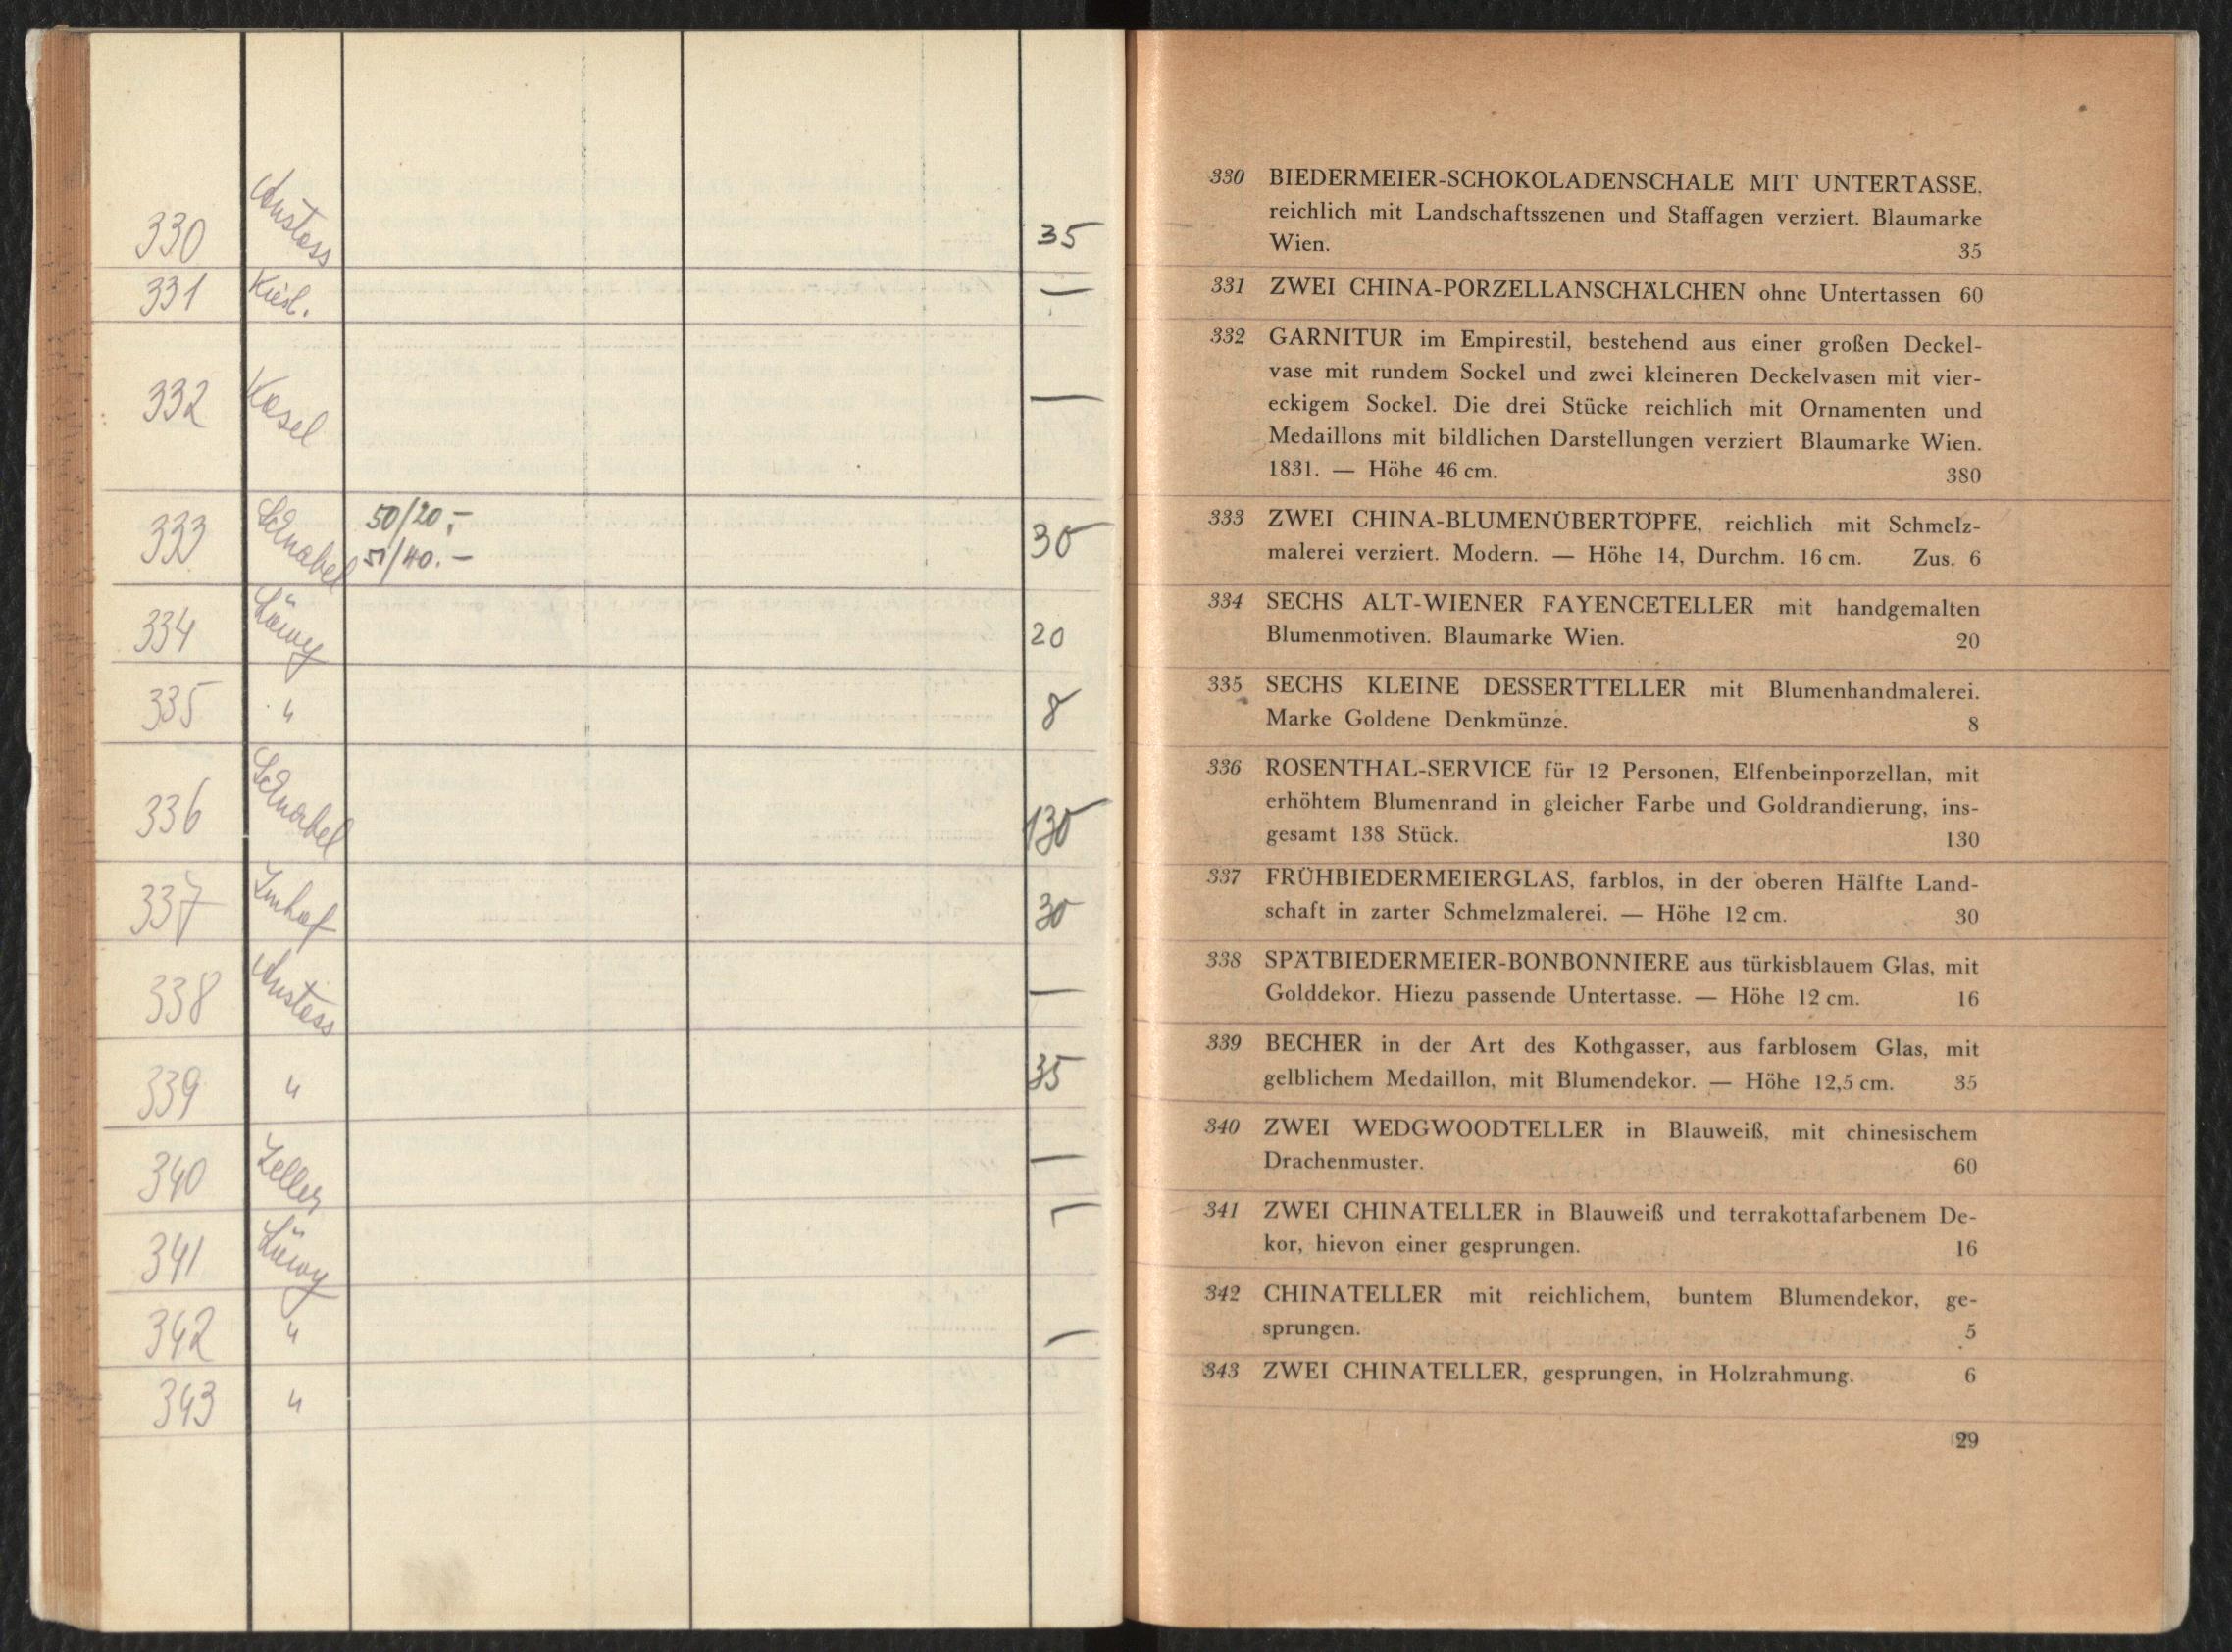 330 Anstoss 35
331 Kiesl. —
332 Kosel —
333 Schnabel 50/20,- 30
51/40.-
334 Löwy 20
335 " 8
336 Schnabel 130
337 Imhof 30
338 Anstoss —
339 " 35
340 Zeller —
341 Löwy —
342 " —
343 "
330 BIEDERMEIER-SCHOKOLADENSCHALE MIT UNTERTASSE,
reichlich mit Landschaftsszenen und Staffagen verziert. Blaumarke
Wien. 35
331 ZWEI CHINA-PORZELLANSCHÄLCHEN ohne Untertassen 60
332 GARNITUR im Empirestil, bestehend aus einer großen Deckel-
vase mit rundem Sockel und zwei kleineren Deckelvasen mit vier-
eckigem Sockel. Die drei Stücke reichlich mit Ornamenten und
Medaillons mit bildlichen Darstellungen verziert Blaumarke Wien.
1831. — Höhe 46 cm. 380
333 ZWEI CHINA-BLUMENÜBERTÖPFE, reichlich mit Schmelz-
malerei verziert. Modern. — Höhe 14, Durchm. 16 cm. Zus. 6
334 SECHS ALT-WIENER FAYENCETELLER mit handgemalten
Blumenmotiven. Blaumarke Wien. 20
335 SECHS KLEINE DESSERTTELLER mit Blumenhandmalerei.
Marke Goldene Denkmünze. 8
336 ROSENTHAL-SERVICE für 12 Personen, Elfenbeinporzellan, mit
erhöhtem Blumenrand in gleicher Farbe und Goldrandierung, ins-
gesamt 138 Stück. 130
337 FRÜHBIEDERMEIERGLAS, farblos, in der oberen Hälfte Land-
schaft in zarter Schmelzmalerei. — Höhe 12 cm. 30
338 SPÄTBIEDERMEIER-BONBONNIERE aus türkisblauem Glas, mit
Golddekor. Hiezu passende Untertasse. — Höhe 12 cm. 16
339 BECHER in der Art des Kothgasser, aus farblosem Glas, mit
gelblichem Medaillon, mit Blumendekor. — Höhe 12,5 cm. 35
340 ZWEI WEDGWOODTELLER in Blauweiß, mit chinesischem
Drachenmuster. 60
341 ZWEI CHINATELLER in Blauweiß und terrakottafarbenem De-
kor, hievon einer gesprungen. 16
342 CHINATELLER mit reichlichem, buntem Blumendekor, ge-
sprungen. 5
343 ZWEI CHINATELLER, gesprungen, in Holzrahmung. 6
29